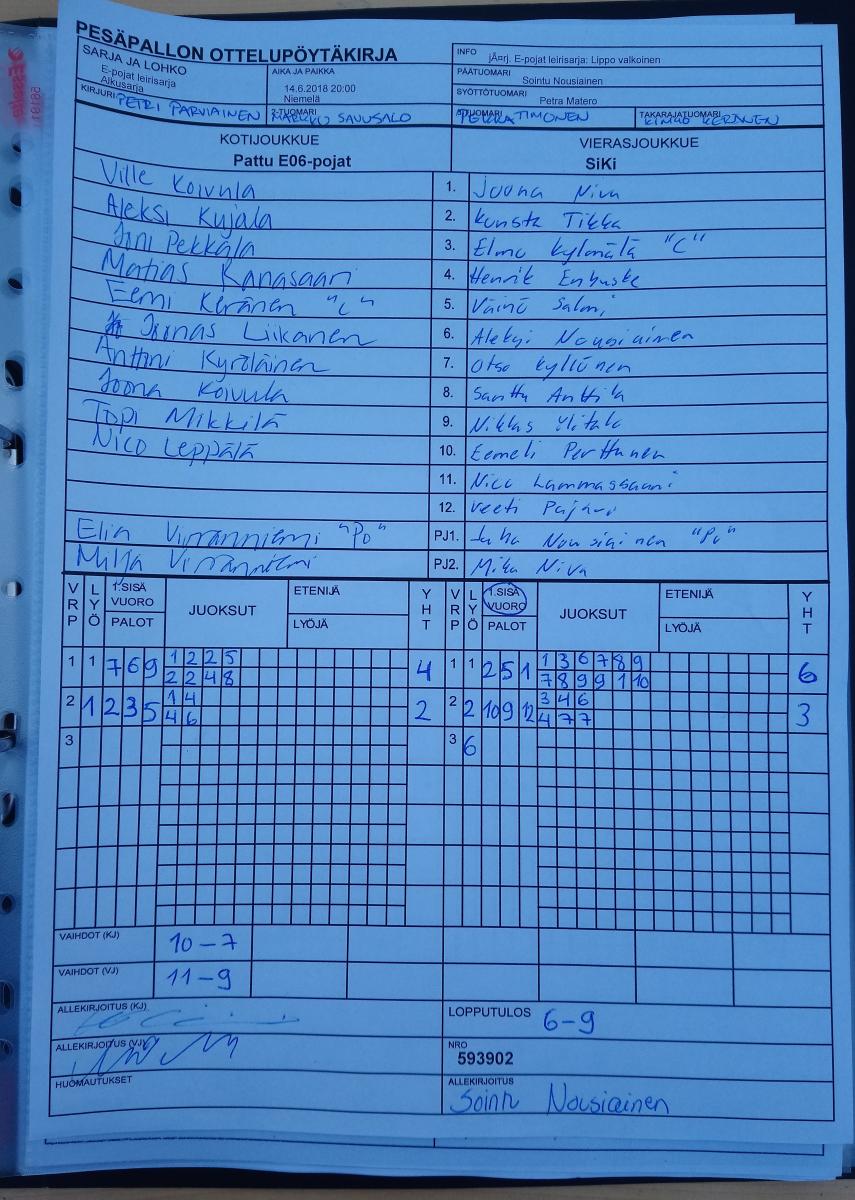 PESÄPALLON OTTELUPÖYTÄKIRJA
SARJA JA LOHKO
E-pojat leirisarja
Alkusarja
AIKA JA PAIKKA
14.6.2018 20:00
Niemelä
INFO
jÃ¤rj. E-pojat leirisarja: Lippo valkoinen
PÄÄTUOMARI
Sointu Nousiainen
SYÖTTÖTUOMARI
Petra Matero
KIRJURI PETRI PARVIAINEN
2-TUOMARI MARKKU SAVUSALO
PEKKA TIMONEN
TAKARAJATUOMARI KIMMO KERÄNEN
KOTIJOUKKUE
Pattu E06-pojat
VIERASJOUKKUE
SiKi
Ville Koivula 1. Joona Niva
Aleksi Kujala 2. Kunsta Tikka
Joni Pekkala 3. Elmo Kylmälä "C"
Matias Kanasaari 4. Henrik Enbuske
Eemi Keränen "C" 5. Väinö Salmi
Joonas Liikanen 6. Aleksi Nousiainen
Anttoni Kyröläinen 7. Otso Kyllönen
Joona Koivula 8. Santtu Anttila
Topi Mikkilä 9. Niklas Ylitalo
Nico Leppälä 10. Eemeli Perttunen
11. Nico Lammassaari
12. Veeti Pajari
Elia Virranniemi "Po" PJ1. Juha Nousiainen "Po"
Milja Virranniemi PJ2. Mika Niva
VRP LYÖ 1.SISÄ VUORO PALOT JUOKSUT ETENIJÄ LYÖJÄ YHT VRP LYÖ 1.SISÄ VUORO PALOT JUOKSUT ETENIJÄ LYÖJÄ YHT
1 1 7 6 9 1 2 2 5 4 1 1 2 5 1 1 3 6 7 8 9 6
2 2 4 8 7 8 9 9 1 10
2 1 2 3 5 1 4 2 2 2 10 9 12 3 4 6 3
4 6 4 7 7
3 3 6
VAIHDOT (KJ) 10-7
VAIHDOT (VJ) 11-9
ALLEKIRJOITUS (KJ)
LOPPUTULOS 6-9
ALLEKIRJOITUS (VJ)
NRO
593902
HUOMAUTUKSET
ALLEKIRJOITUS
Sointu Nousiainen